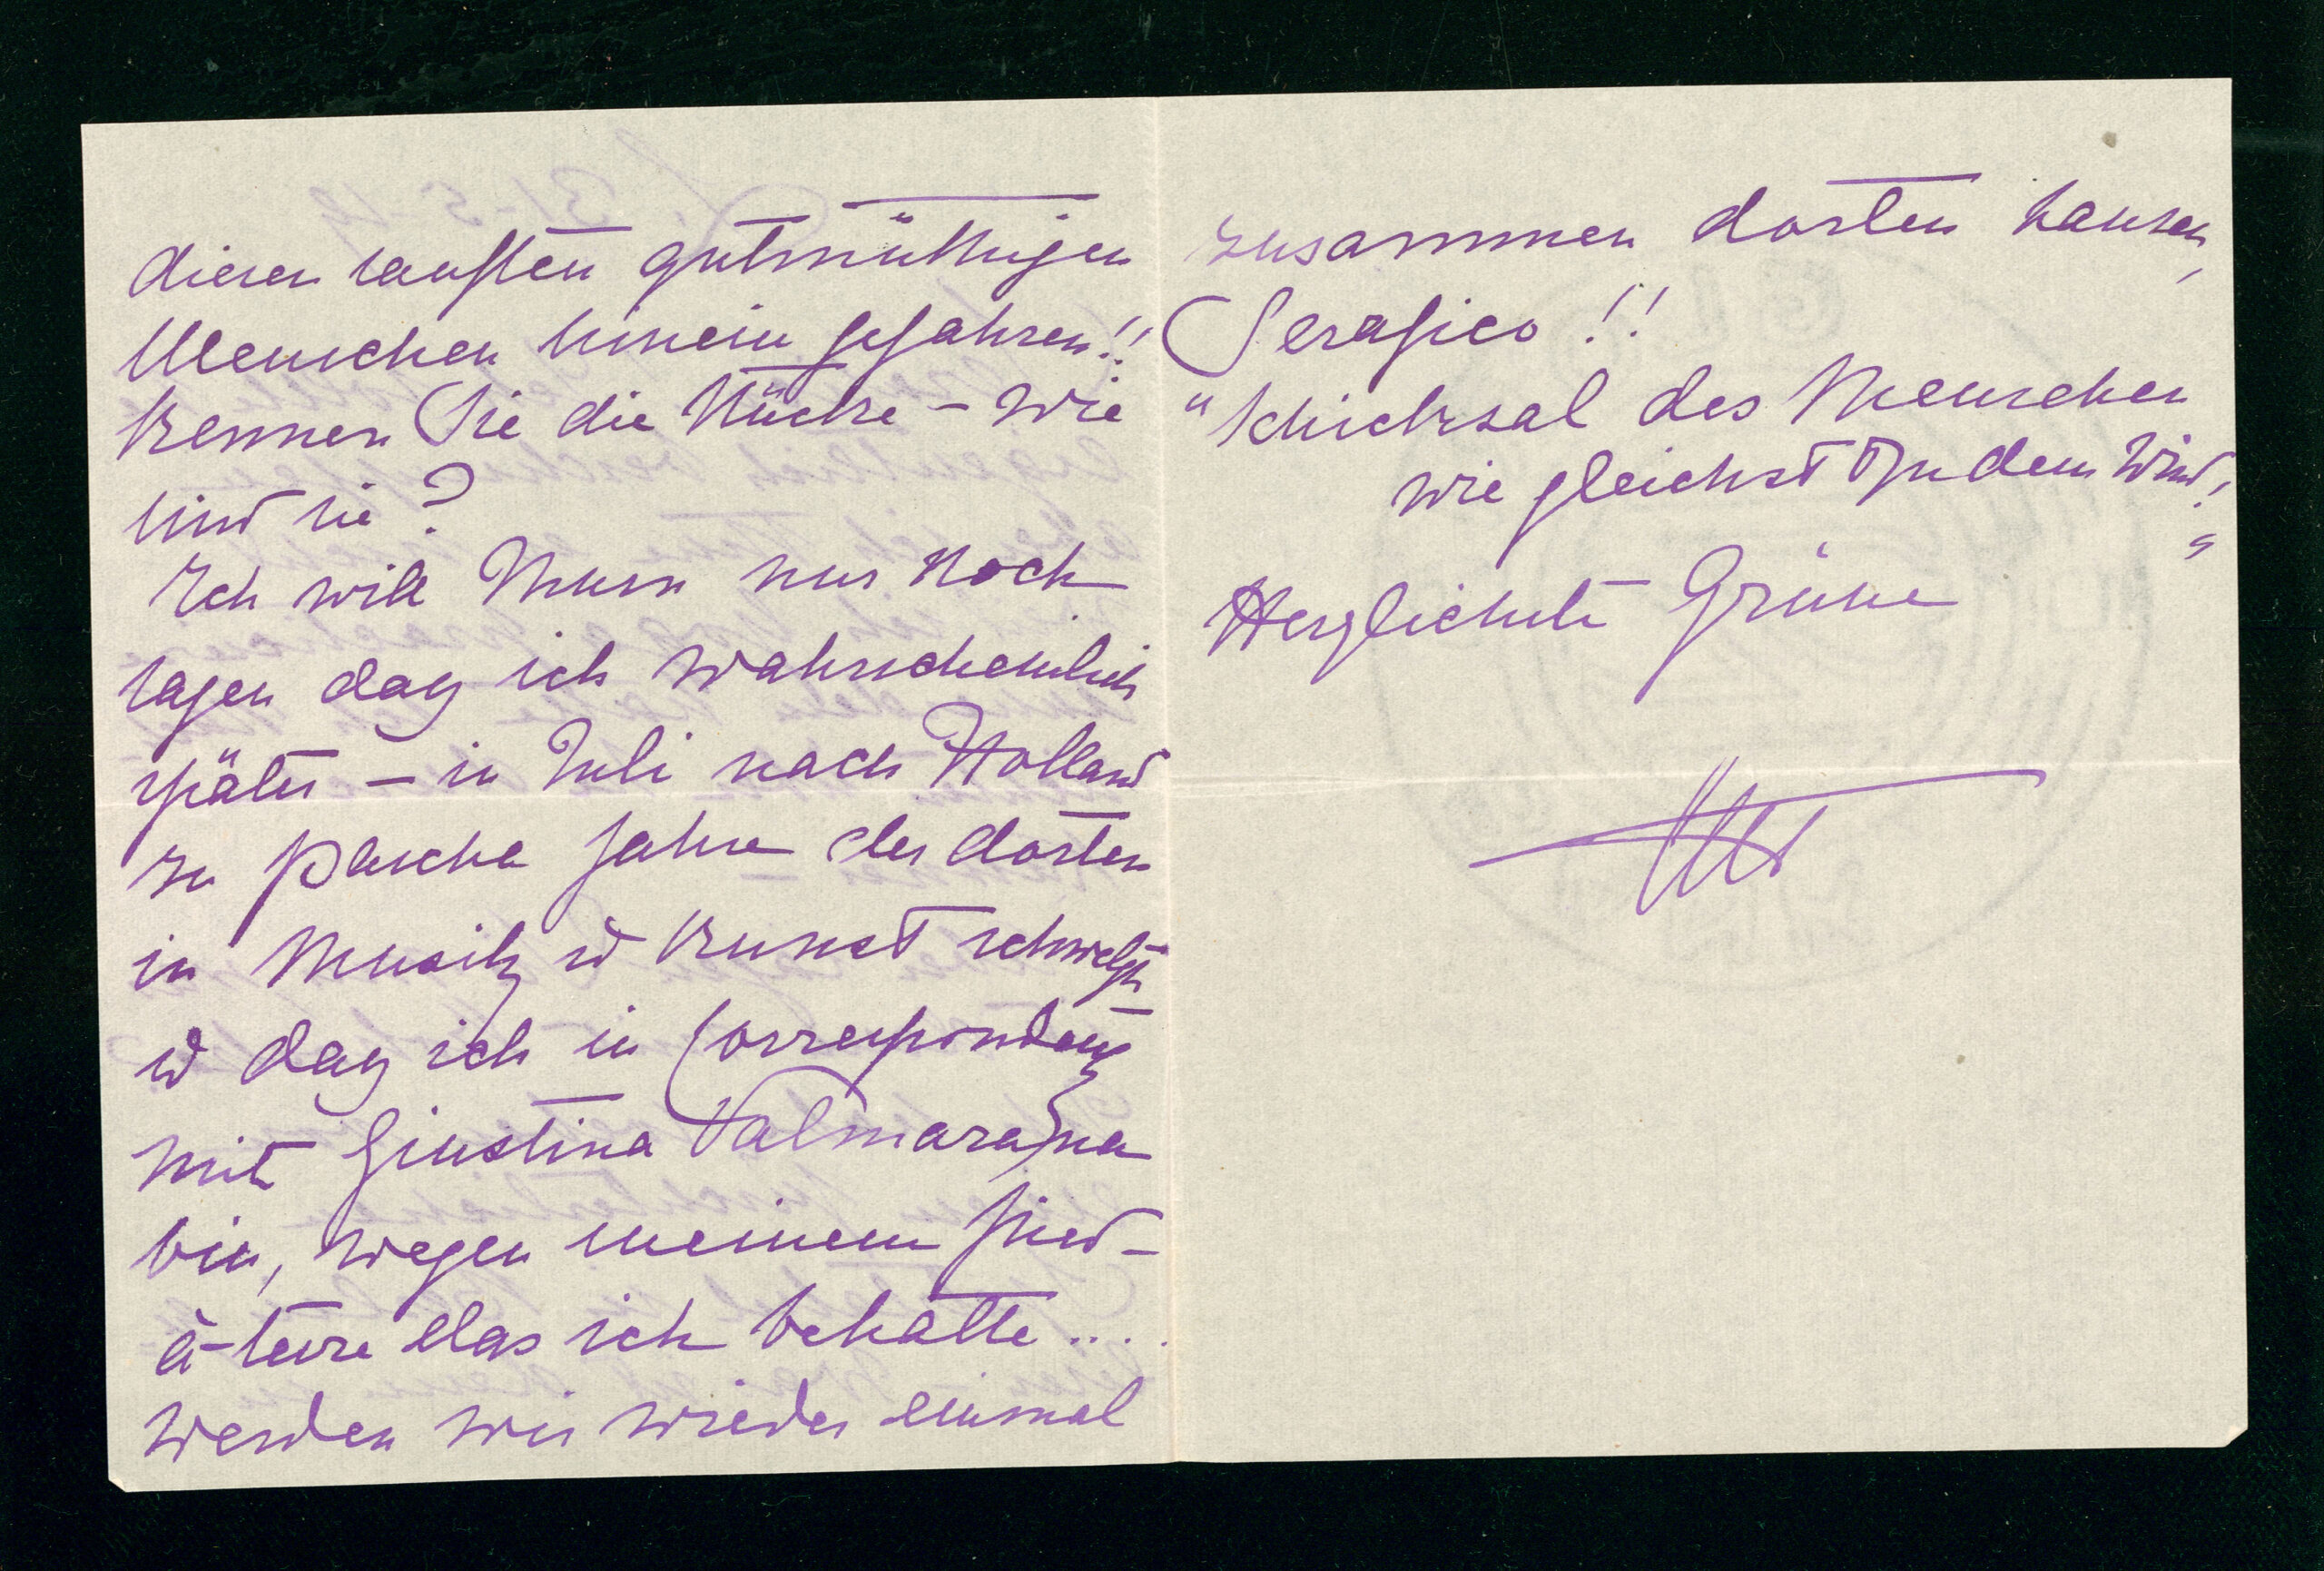 diesen sanften gutmüthigen
Menschen hinein gefahren!!
Kennen Sie die Stücke – wie
sind sie?
Ich will Ihnen nur noch
sagen daß ich wahrscheinlich
später – in Juli nach Holland
zu Pascha fahre der dorten
in Musik u Kunst schwelgt
u daß ich in Correspondenz
mit Giustina Valmarana
bin, wegen meinem pied-
à-terre das ich behalte....
Werden wir wieder einmal
zusammen dorten hausen,
Serafico!!
"Schicksal des Menschen
wie gleichst Du dem Wind!"
Herzlichste Grüsse
MT